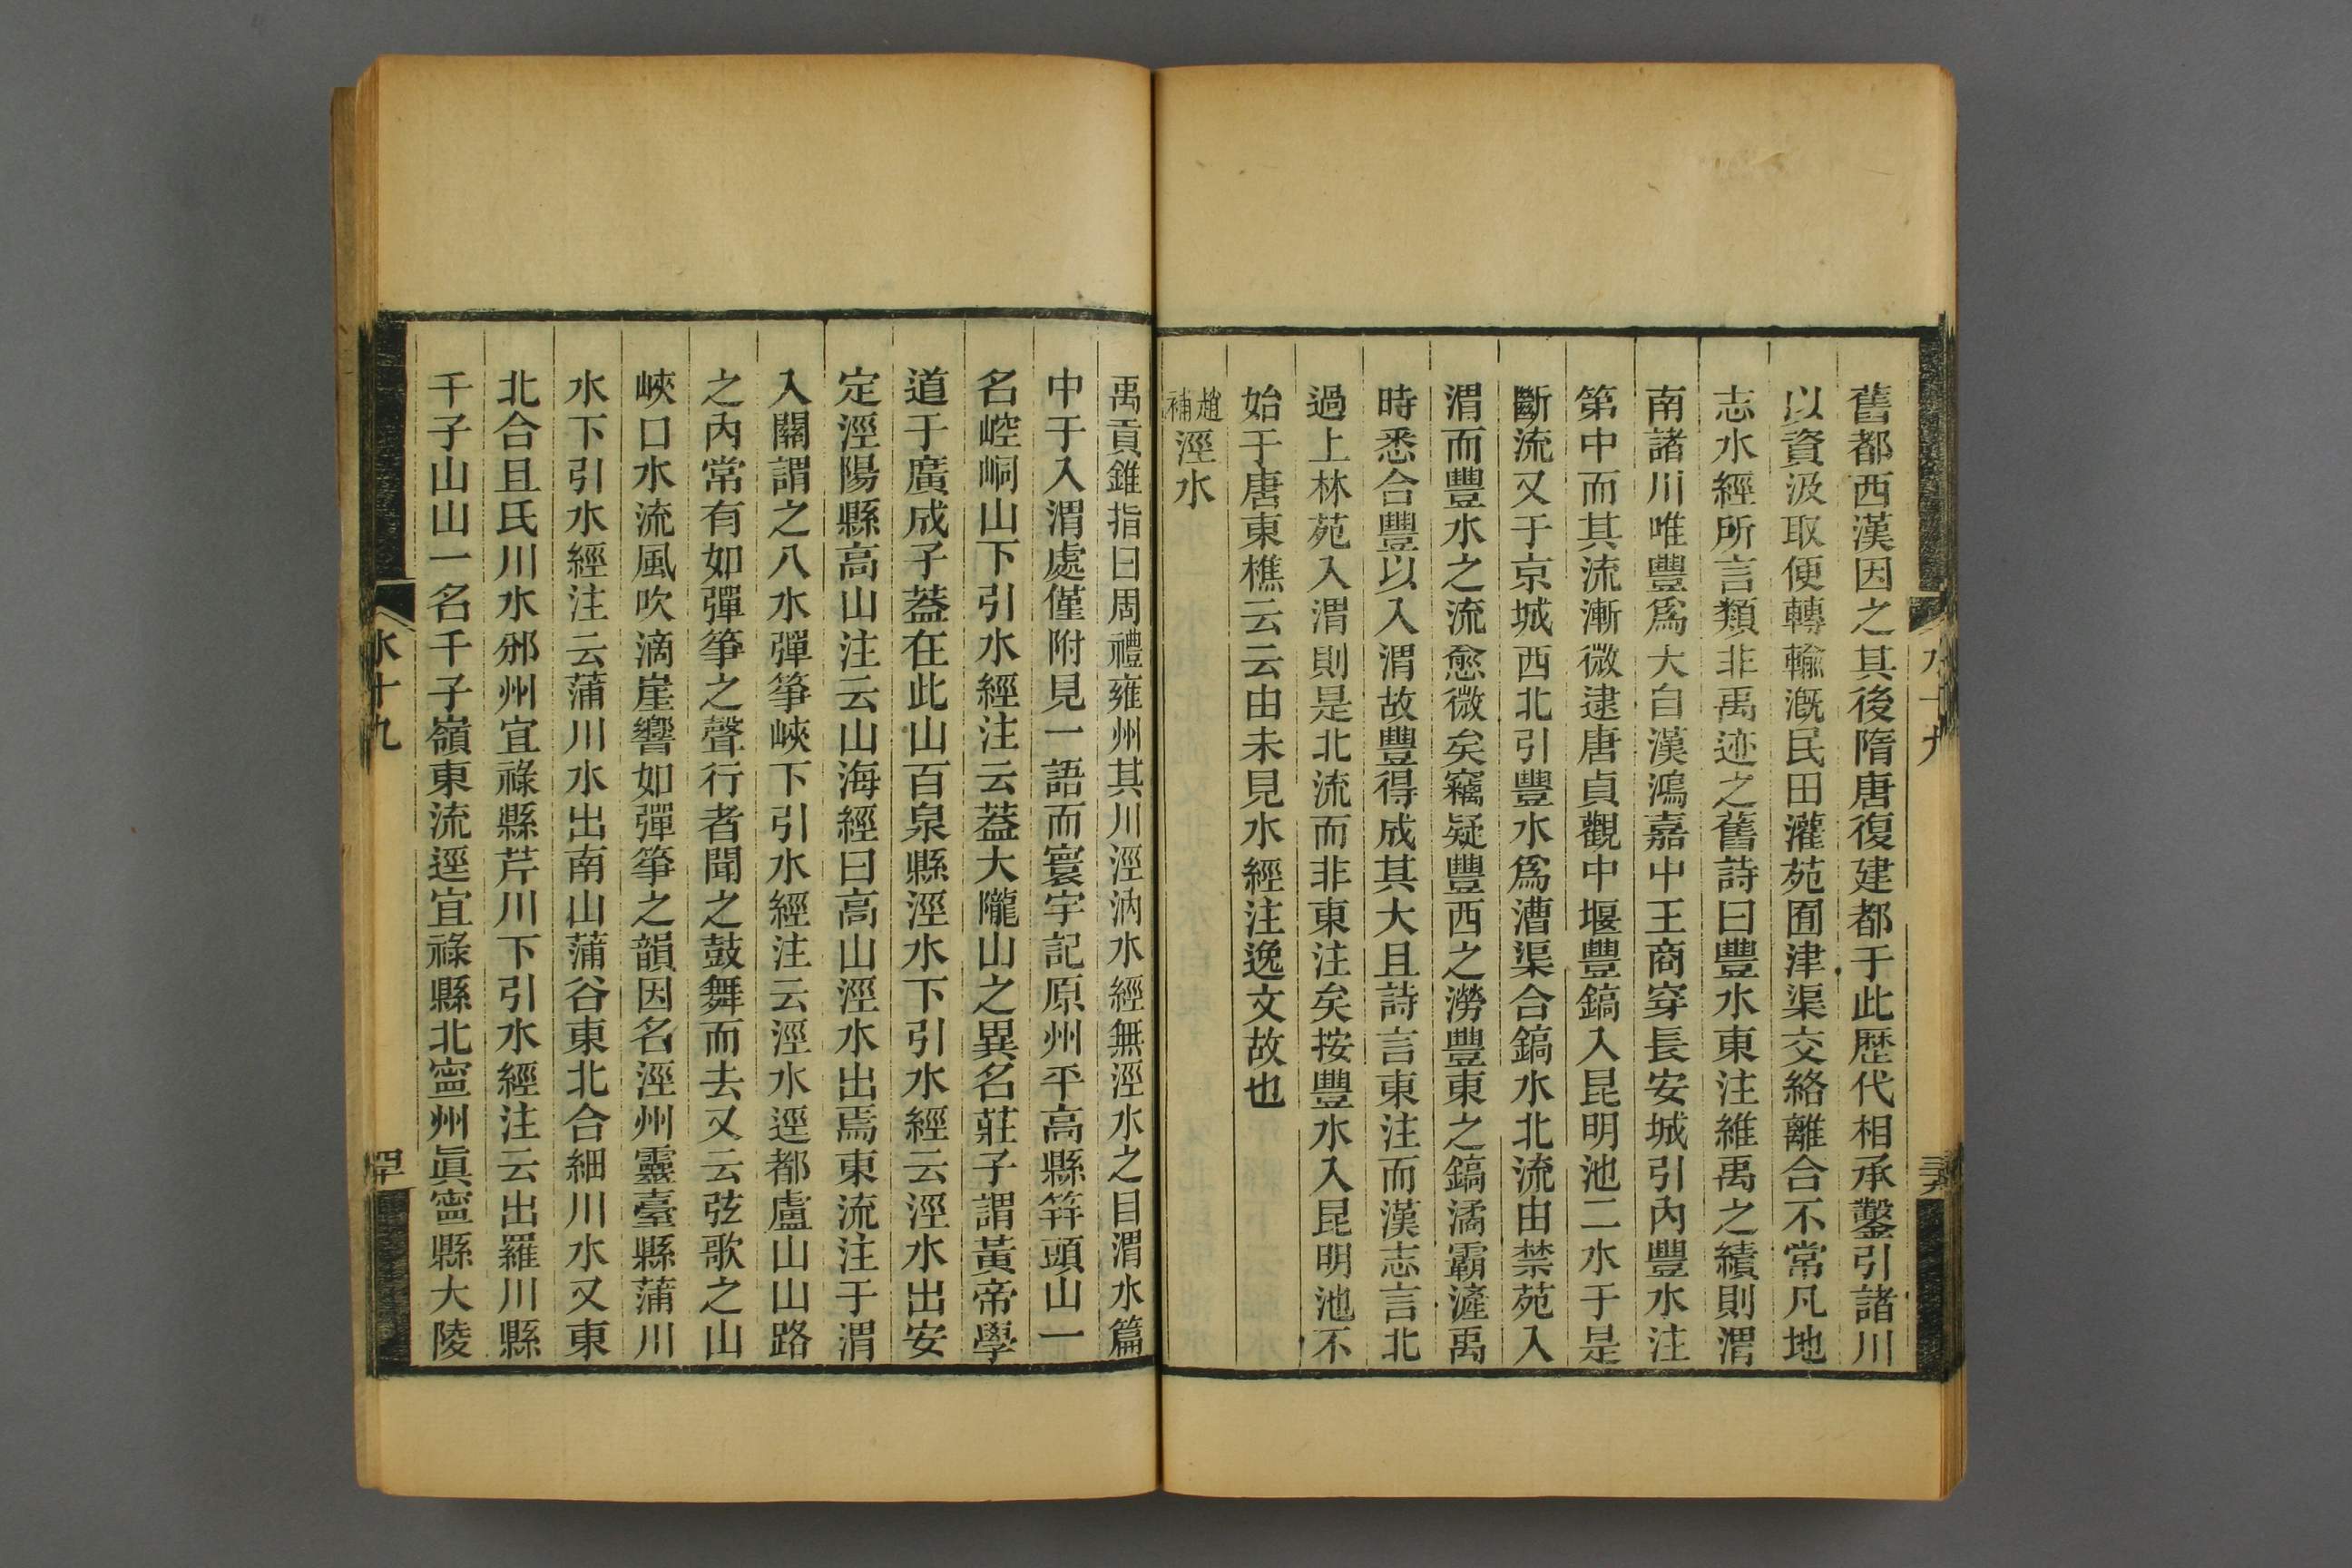 舊都西漢因之其後隋唐復建都于此歷代相承鑿引諸川
以資汲取便轉輸漑民田灌苑囿津渠交絡離合不常凡地
志水經所言類非禹迹之舊詩曰豐水東注維禹之績則渭
南諸川唯豐爲大自漢鴻嘉中王商穿長安城引內豐水注
第中而其流漸微逮唐貞觀中堰豐鎬入昆明池二水于是
斷流又于京城西北引豐水爲漕渠合鎬水北流由禁苑入
渭而豐水之流愈微矣竊疑豐西之澇豐東之鎬潏霸滻禹
時悉合豐以入渭故豐得成其大且詩言東注而漢志言北
過上林苑入渭則是北流而非東注矣按豐水入昆明池不
始于唐東樵云云由未見水經注逸文故也
趙補涇水
水十九
三十九
禹貢錐指曰周禮雍州其川涇汭水經無涇水之目渭水篇
中于入渭處僅附見一語而寰宇記原州平高縣筓頭山一
名崆峒山下引水經注云葢大隴山之異名莊子謂黃帝學
道于廣成子葢在此山百泉縣涇水下引水經云涇水出安
定涇陽縣高山注云山海經曰高山涇水出焉東流注于渭
入關謂之八水彈筝峽下引水經注云涇水逕都盧山山路
之內常有如彈筝之聲行者聞之鼓舞而去又云弦歌之山
峽口水流風吹滴崖響如彈筝之韻因名涇州靈臺縣蒲川
水下引水經注云蒲川水出南山蒲谷東北合細川水又東
北合且氏川水邠州宜祿縣芹川下引水經注云出羅川縣
千子山山一名千子嶺東流逕宜祿縣北寍州眞寍縣大陵
水十九
四十